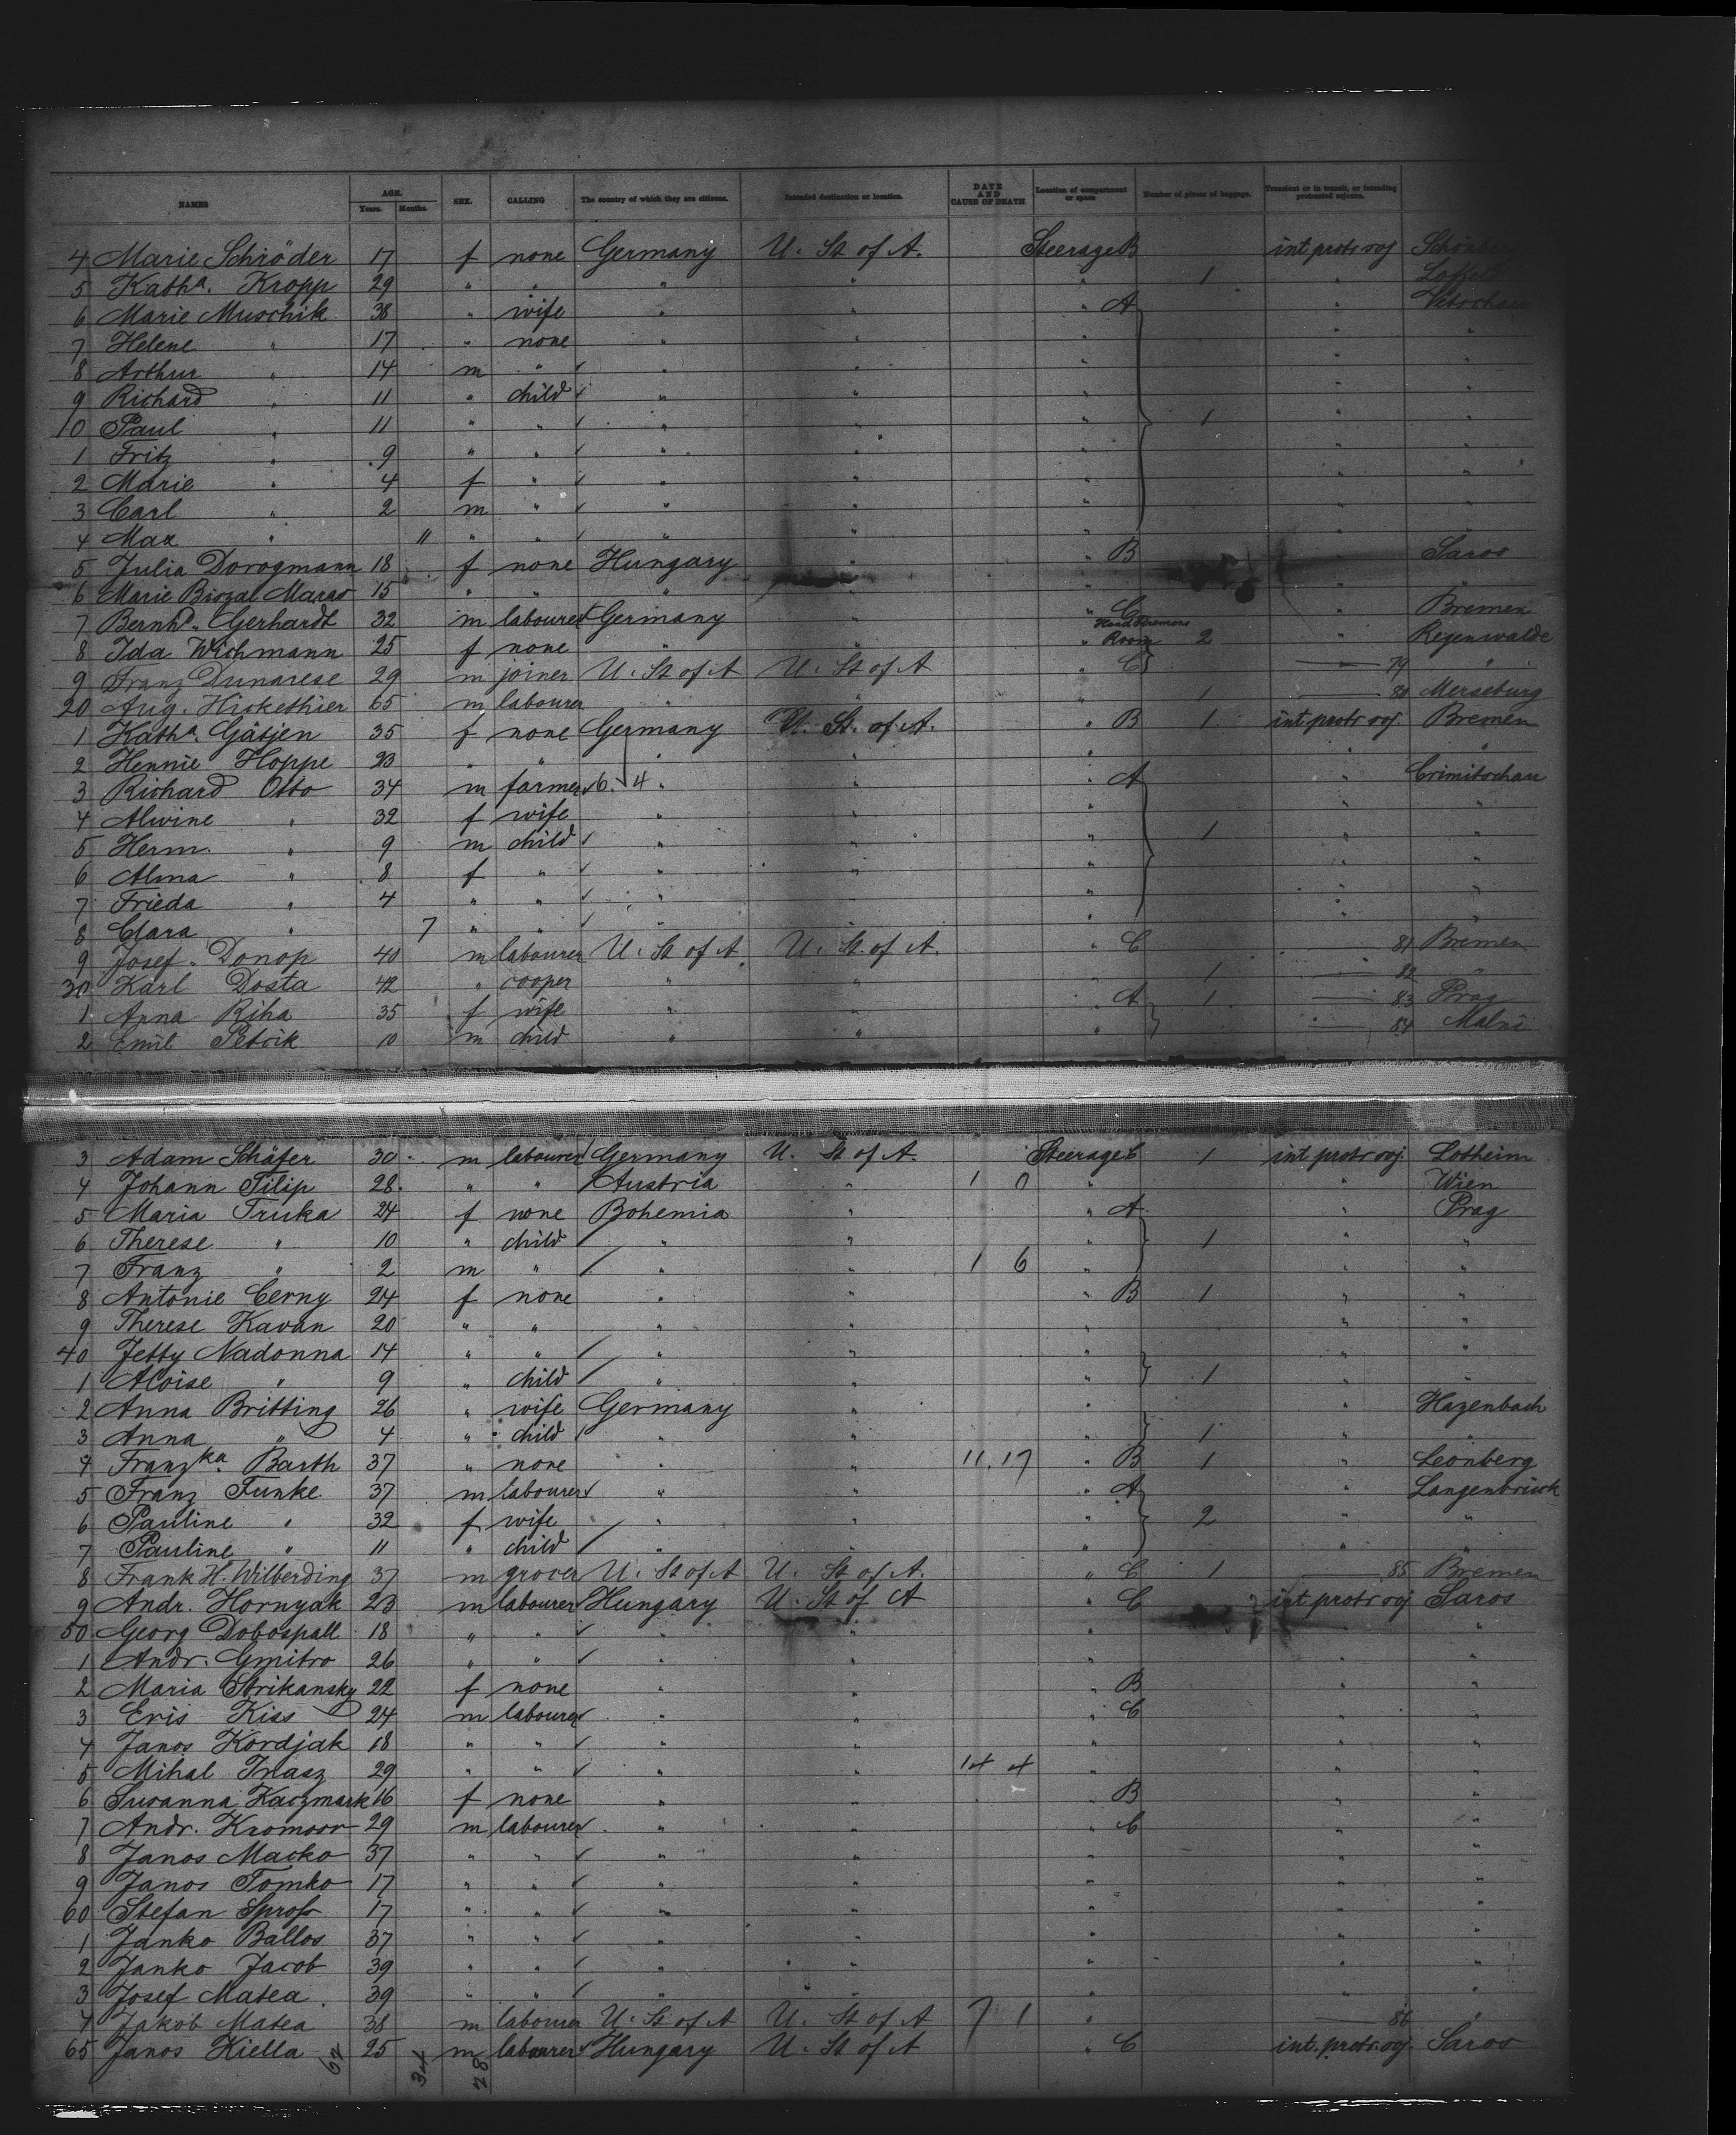 NAMES AGE. Years. Months. SEX. CALLING The country of which they are citizens. Intended destination or location. DATE AND CAUSE OF DEATH Location of compartment or space Number of pieces of luggage. Transient or in transit, or intending protracted sojourn.
4 Marie Schröder 17 f none Germany U. St of A. Steerage B int protr soj
5 Katha. Kropp 29 " " " " " 1 "
6 Marie Muschik 38 " wife " " " A "
7 Helene " 17 " none " " " " "
8 Arthur " 14 m " " " " " "
9 Richard " 11 " child " " " " "
10 Paul " 11 " " " " " 1 " "
1 Fritz " 9 " " " " " " "
2 Marie " 4 f " " " " " "
3 Carl " 2 m " " " " " "
4 Max " 11 " " " " " " "
5 Julia Dorogmann 18 f none Hungary " " B " Saros
6 Marie 15 " " " " " " "
7 Bernhd. Gerhardt 32 m labourer Germany " " C " Bremen
8 Ida Wichmann 25 f none " " " Room 2 " Regenwalde
9 Franz Dunarese 29 m joiner U. St of A U. St of A " C 79 "
20 Aug. Hickethier 65 m labourer " " " 1 80 Merseburg
1 Katha. Gätjen 35 f none Germany U. St. of A. " B 1 int protr soj. Bremen
2 Hennie Hoppe 23 " " " " " " "
3 Richard Otto 34 m farmer 6 4 " " " A " Crimitschau
4 Alwine " 32 f wife " " " " "
5 Herm. " 9 m child " " " 1 " "
6 Alma " 8 f " " " " " "
7 Frieda " 4 " " " " " " "
8 Clara " 7 " " " " " " "
9 Josef Donop 40 m labourer U. St of A. U. St. of A. " C 81 Bremen
30 Karl Dosta 42 " cooper " " " 1 82 "
1 Anna Riha 35 f wife " " " A 1 83 Prag
2 Emil Petrik 10 m child " " " 84
3 Adam Schäfer 30 m labourer Germany U. St of A. Steerage C 1 int protr soj. Lotheim
4 Johann Filip 28 " " Austria " 1 0 " " Wien
5 Maria Truka 24 f none Bohemia " " A " Prag
6 Therese " 10 " child " " " 1 " "
7 Franz " 2 m " " " 1 6 " " "
8 Antonie Cerny 24 f none " " " B 1 " "
9 Therese Kavan 20 " " " " " " "
40 Jetty Nadonna 14 " " " " " " "
1 Aloise " 9 " child " " " 1 " "
2 Anna Britting 26 " wife Germany " " " Hazenbach
3 Anna " 4 " child " " " 1 " "
4 Franzka. Barth 37 " none " " 11.17 " B 1 " Leonberg
5 Franz Funke 37 m labourer " " " A " Langenbrück
6 Pauline " 32 f wife " " " 2 " "
7 Pauline " 11 " child " " " " "
8 Frank H. Wilberding 37 m grocer U. St of A U. St of A. " C 1 85 Bremen
9 Andr. Hornyak 23 m labourer Hungary U. St of A " C int protr soj Saros
50 Georg Dobospall 18 " " " " " " "
1 Andr. Gmitro 26 " " " " " " "
2 Maria Strikansky 22 f none " " " B " "
3 Eris Kiss 24 m labourer " " " C " "
4 Janos Kordjak 18 " " " " " " "
5 Mihal 29 " " " " 14 4 " " "
6 Susanna Kaczmark 16 f none " " " B " "
7 Andr. Kromoor 29 m labourer " " " C " "
8 Janos Macko 37 " " " " " " "
9 Janos Tomko 17 " " " " " " "
60 Stefan 17 " " " " " " "
1 Janko Ballos 37 " " " " " " "
2 Janko Jacob 39 " " " " " " "
3 Josef Matea 39 " " " " " " "
4 Jakob Matea 38 m labourer U. St of A U. St of A 7 1 " 86 "
65 Janos Kiella 25 m labourer Hungary U. St of A " C int. protr. soj. Saros
62 34 28